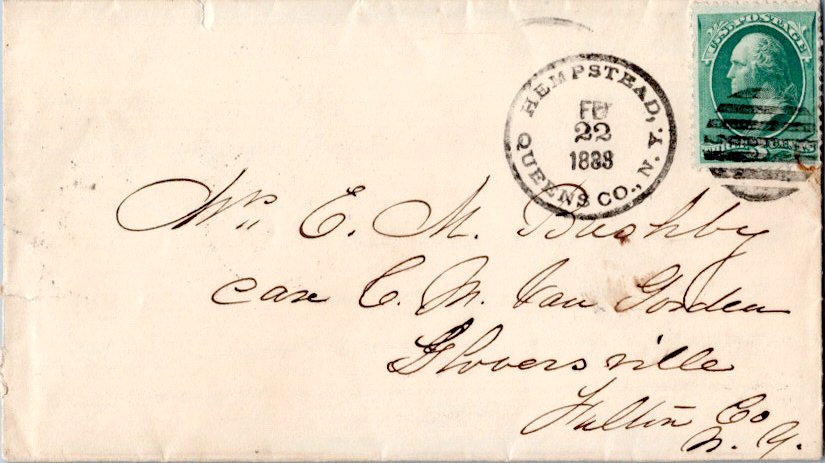 HEMPSTEAD, N.Y.
FEB
22
1883
QUEENS CO.,
U.S. POSTAGE
Mrs. E. M. Bushby
care C. M. Van Gorden
Gloversville
Fulton Co
N. Y.